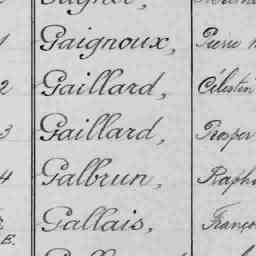 1 Gaignoux, Pierre
2 Gaillard, Célestin
3 Gaillard, Prosper
4 Galbrun, Raph
E. Gallais, Franço